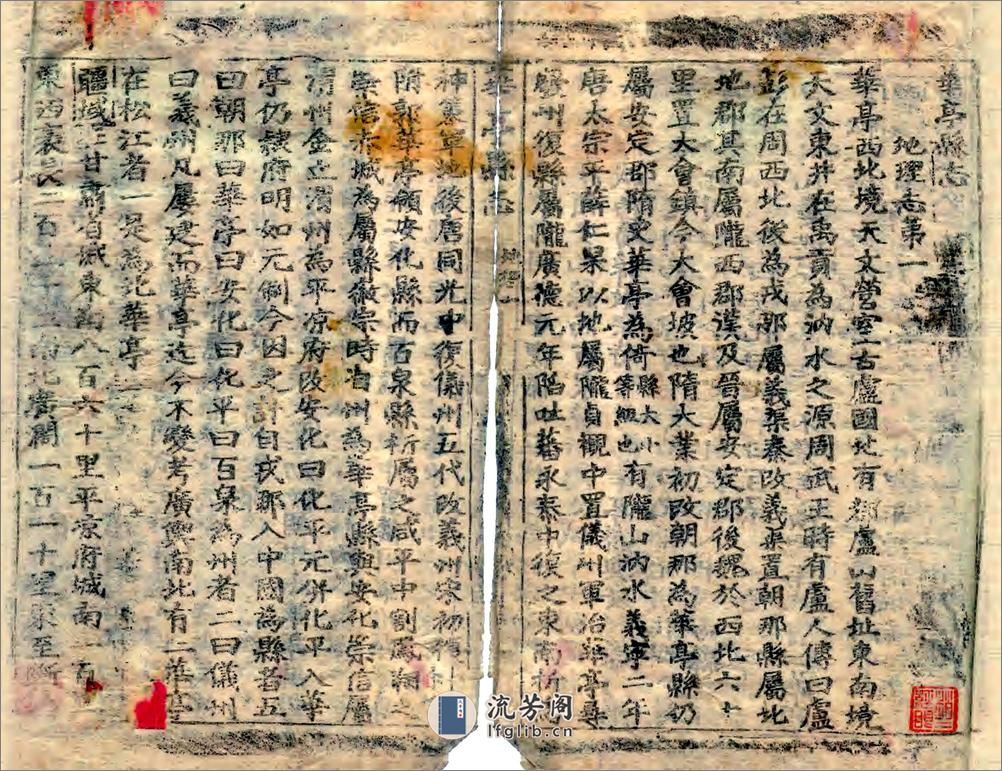 華亭縣志
地理志苐一
華亭西北境天文營室古盧國地有都盧山舊址東南境
天文東井在禹貢為汭水之源周武王時有盧人傳曰盧
彭在周西北後為戎那屬義渠秦改義渠置朝那縣屬北
地郡其南屬隴西郡漢及晉屬安定郡後魏於西北六十
里置大會鎮今大會坡也隋大業初改朝那為華亭縣仍
屬安定郡隋史華亭為倚縣大小等級也有隴山汭水義寧二年
唐太宗平薛仁杲以地屬隴貞觀中置儀州軍治華亭尋
廢州復縣屬隴廣德元年陷吐蕃永泰中復之東南析
華亭縣志 地理
神策軍地後唐同光中復儀州五代改義州宋初復
附郭華亭領安化縣而百泉縣析屬之咸平中割鳳翔之
崇信赤城為屬縣徽宗時省州為華亭縣與安化崇信屬
渭州金立渭州為平凉府改安化曰化平元併化平入華
亭仍隸府明如元制今因之計自戎那入中國為縣者五
曰朝那曰華亭曰安化曰化平曰百泉為州者二曰儀州
曰義州凡屢更而華亭迄今不變考廣輿南北有二華亭
在松江者一是為北華亭
疆域在甘肅省城東南八百六十里平凉府城南一百
東西袤長二百 南北廣闊一百一十里東至斷
流芳阁
lfglib.cn